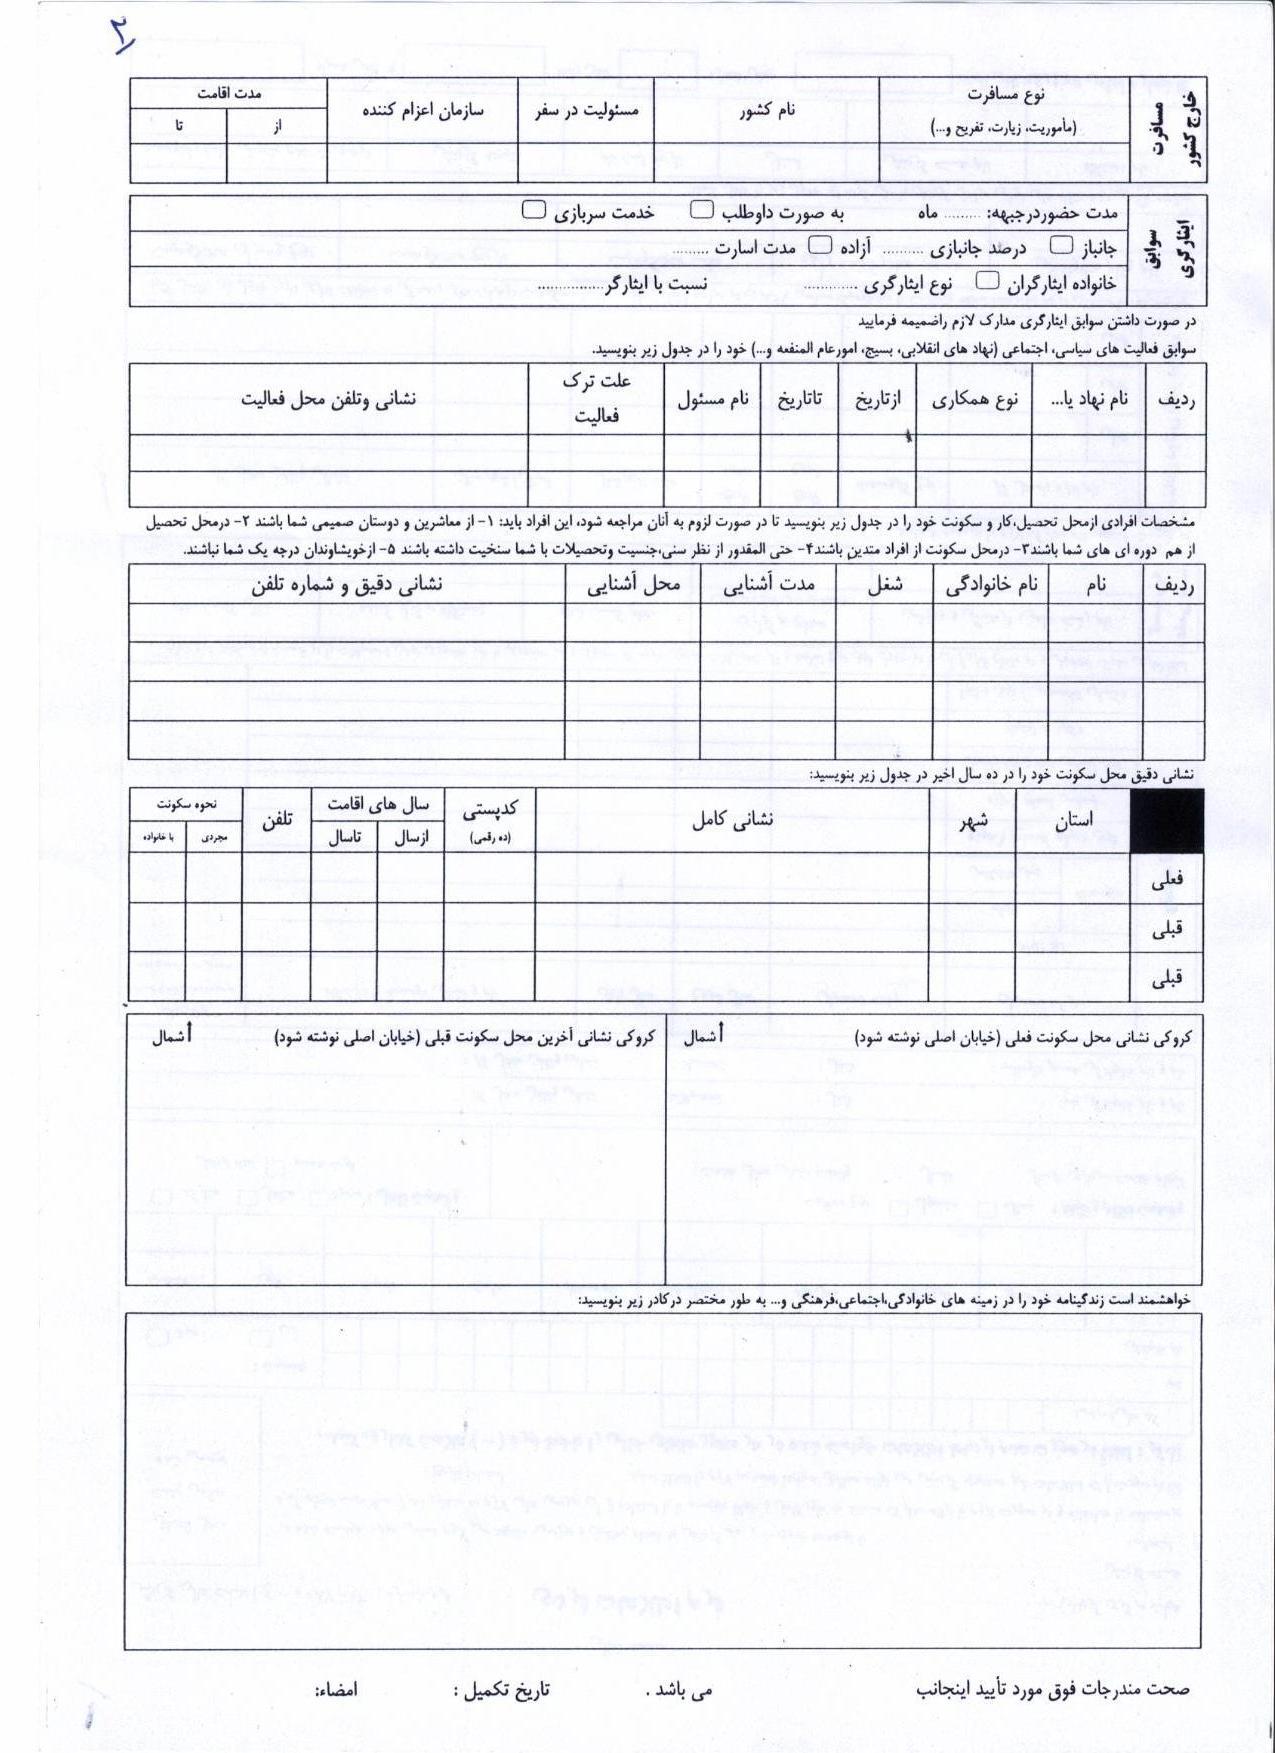 ۲
مسافرت خارج کشور
نوع مسافرت (مأموریت، زیارت، تفریح و...)
نام کشور
مسئولیت در سفر
سازمان اعزام کننده
مدت اقامت
از
تا
سوابق ایثارگری
مدت حضوردرجبهه: ......... ماه به صورت داوطلب خدمت سربازی
جانباز درصد جانبازی .......... آزاده مدت اسارت .........
خانواده ایثارگران نوع ایثارگری .............. نسبت با ایثارگر.................
در صورت داشتن سوابق ایثارگری مدارک لازم راضمیمه فرمایید
سوابق فعالیت های سیاسی، اجتماعی (نهاد های انقلابی، بسیج، امورعام المنفعه و...) خود را در جدول زیر بنویسید.
ردیف
نام نهاد یا...
نوع همکاری
ازتاریخ
تاتاریخ
نام مسئول
علت ترک فعالیت
نشانی وتلفن محل فعالیت
مشخصات افرادی ازمحل تحصیل،کار و سکونت خود را در جدول زیر بنویسید تا در صورت لزوم به آنان مراجعه شود، این افراد باید: ۱- از معاشرین و دوستان صمیمی شما باشند ۲- درمحل تحصیل
از هم دوره ای های شما باشند۳- درمحل سکونت از افراد متدین باشند۴- حتی المقدور از نظر سنی،جنسیت وتحصیلات با شما سنخیت داشته باشند ۵- ازخویشاوندان درجه یک شما نباشند.
ردیف
نام
نام خانوادگی
شغل
مدت آشنایی
محل آشنایی
نشانی دقیق و شماره تلفن
نشانی دقیق محل سکونت خود را در ده سال اخیر در جدول زیر بنویسید:
استان
شهر
نشانی کامل
کدپستی (ده رقمی)
سال های اقامت
ازسال
تاسال
تلفن
نحوه سکونت
مجردی
با خانواده
فعلی
قبلی
قبلی
کروکی نشانی محل سکونت فعلی (خیابان اصلی نوشته شود) شمال
کروکی نشانی آخرین محل سکونت قبلی (خیابان اصلی نوشته شود) شمال
خواهشمند است زندگینامه خود را در زمینه های خانوادگی،اجتماعی،فرهنگی و... به طور مختصر درکادر زیر بنویسید:
صحت مندرجات فوق مورد تأیید اینجانب می باشد . تاریخ تکمیل : امضاء: